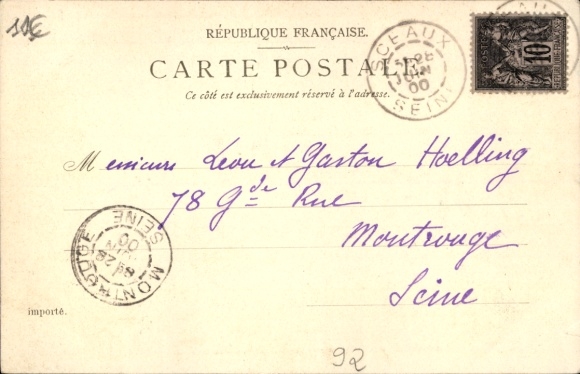 11€
RÉPUBLIQUE FRANÇAISE.
CARTE POSTALE
Ce côté est exclusivement réservé à l'adresse.
SCEAUX
28
JUIN
00
SEINE
10
Messieurs Leon et Gaston Hoelling
78 Gde Rue
Montrouge
Seine
MONTROUGE
28
00
SEINE
importé.
92